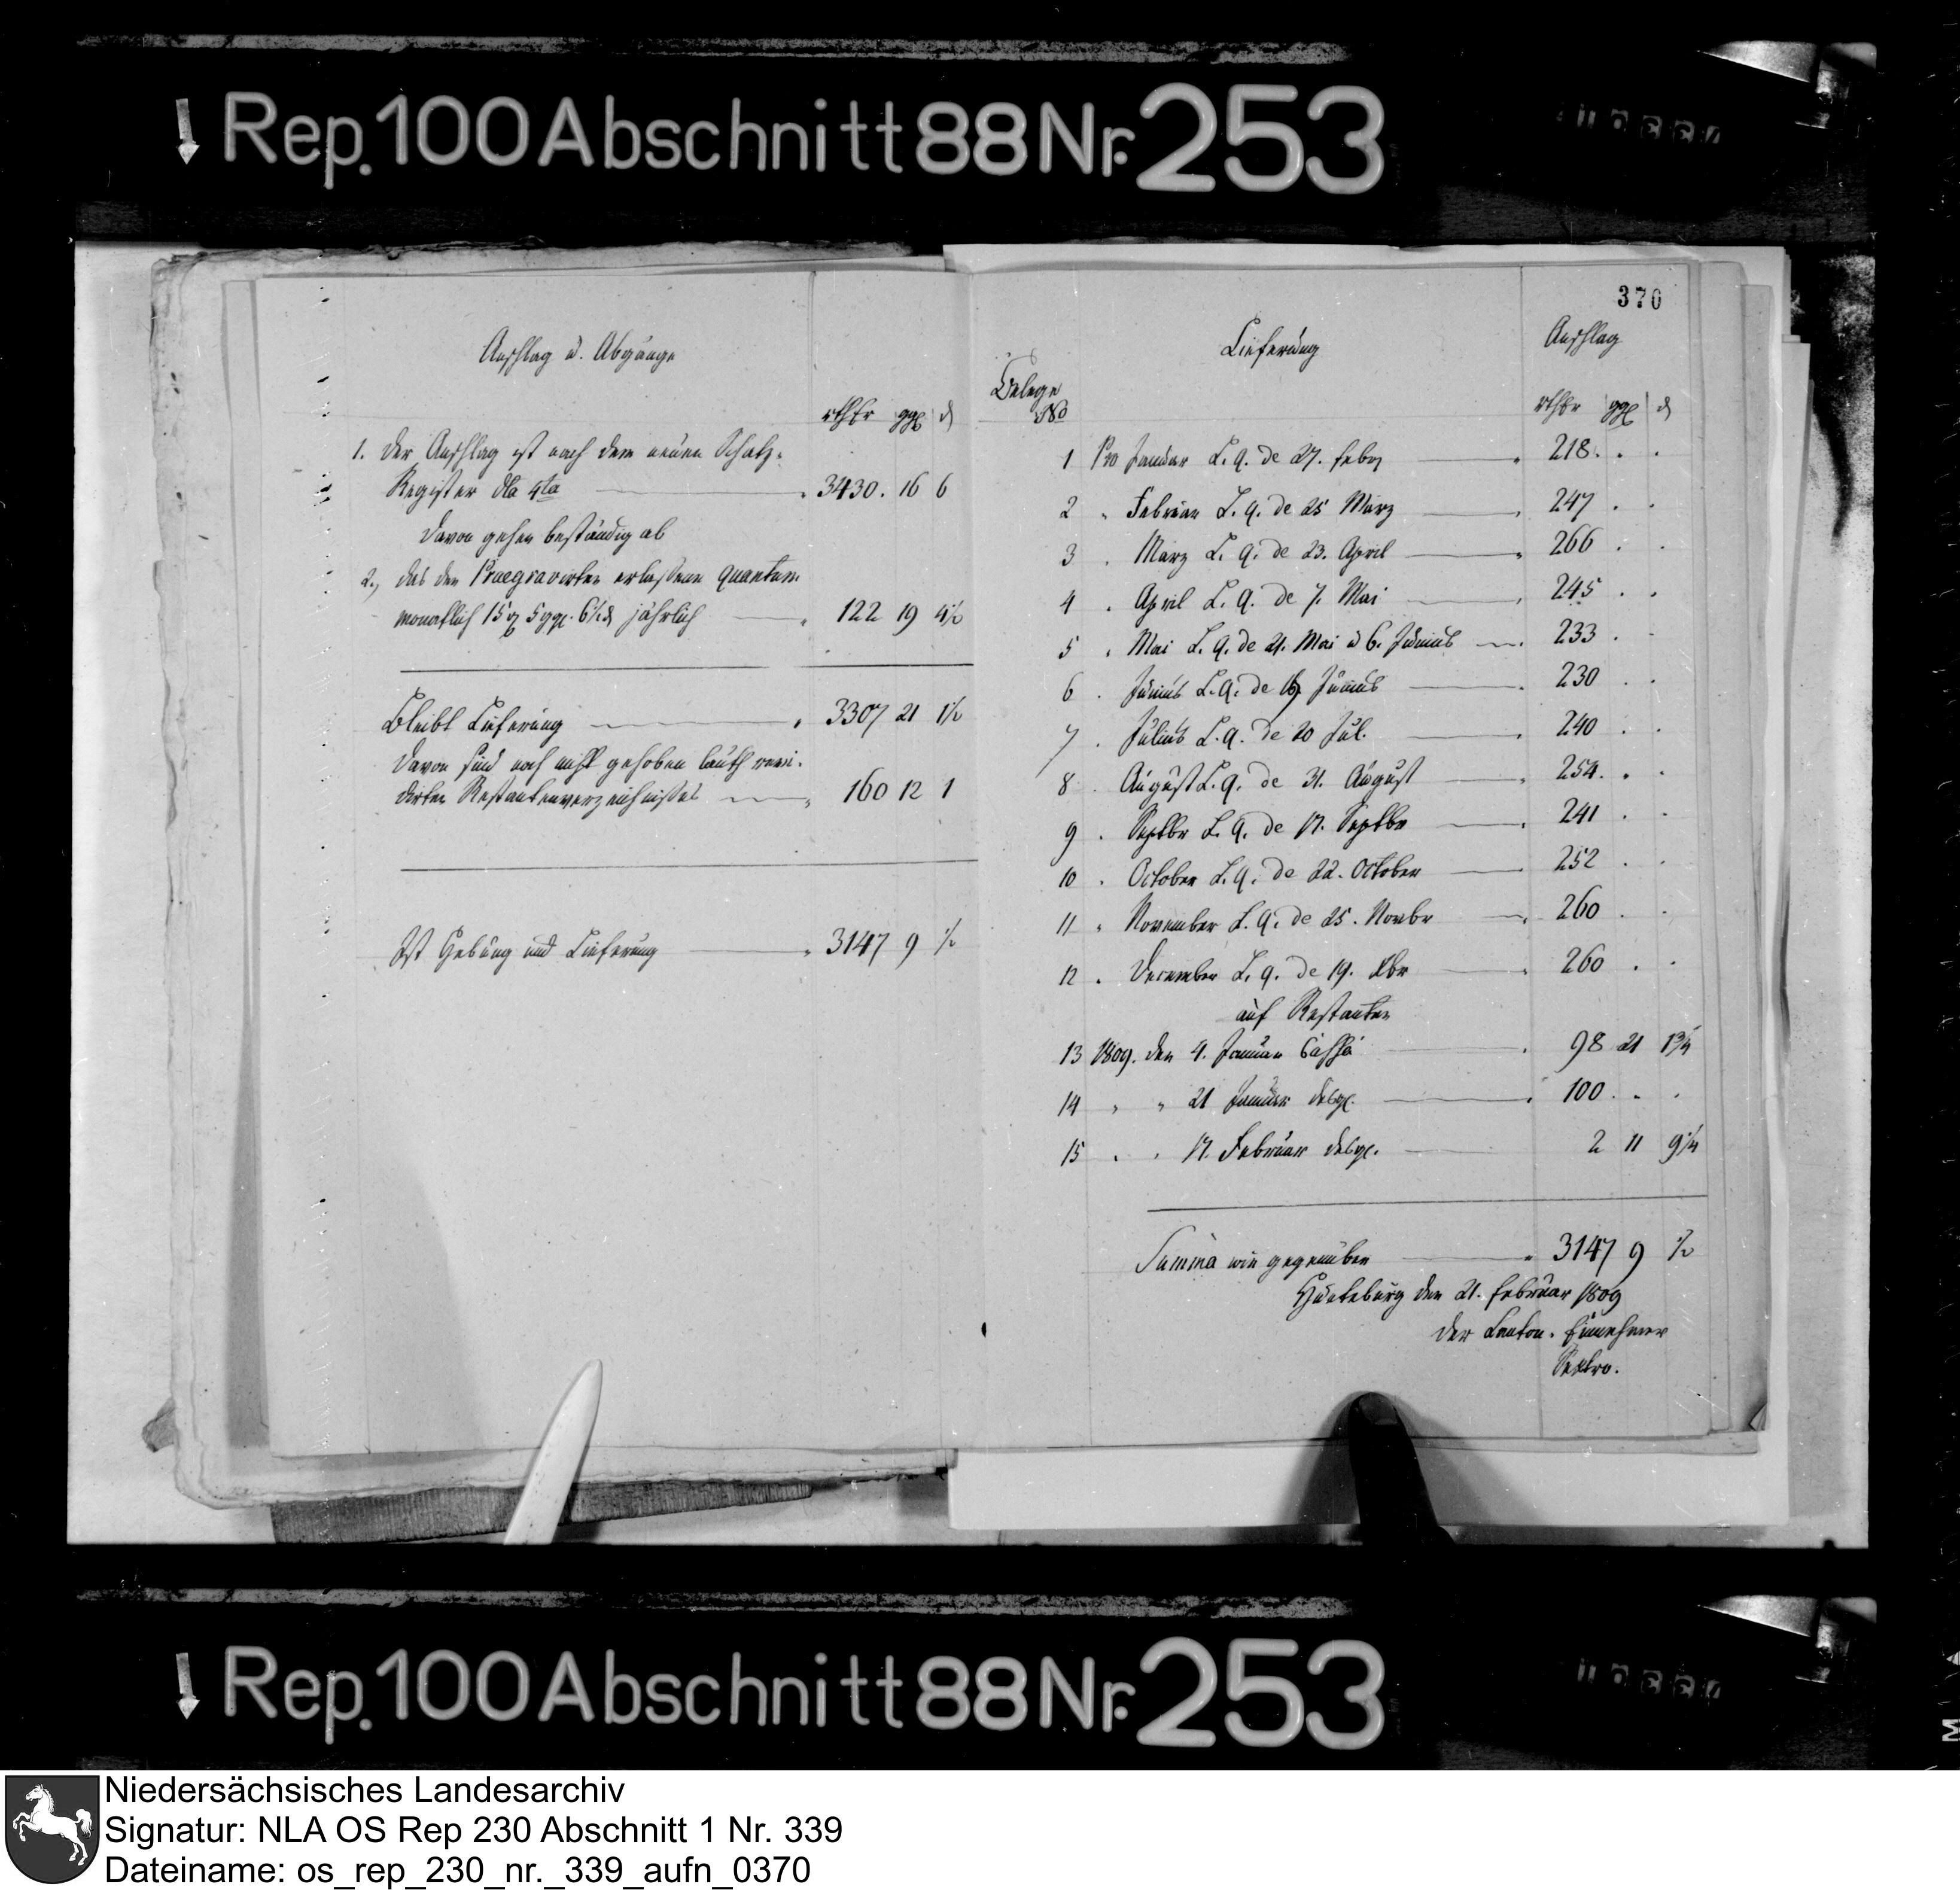 Rep. 100 Abschnitt 88 Nr. 253
Anschlag u. Abgänge
rthlr ggl d
1. Der Anschlag ist nach dem neuen Schatz-
Register 3430. 16 6
Davon gehen beständig ab
2., das den Praegravirten erlaßene quantum
monatlich 15 5 ggl. 6 1/2 d jährlich 122 19 4 1/2
Bleibt Lieferung 3307 21 1 1/2
Davon sind noch nicht gehoben lauth revi-
dirten Restantenverzeichnißes 160 12 1
Ist Hebung und Lieferung 3147 9 1/2
370
Lieferung Anschlag
Belege
No rthlr ggl d
1 Pro Januar L. q. de 27. febr 218. . .
2 " Februar L. q. de 25 März 247 . .
3 " März L. q. de 23. April 266 . .
4 " April L. q. de 7. Mai 245 . .
5 " Mai L. q. de 21. Mai u 6. Junius 233 . .
6 " Junius L. q. de 16 Junius 230 . .
7 " Julius L. q. de 20 Jul. 240 . .
8 " August L. q. de 31. August 254. . .
9 " Septbr L. q. de 17. Septbr 241 . .
10 " October L. q. de 22. October 252 . .
11 " November L. q. de 25. Novbr 260 . .
12 " December L. q. de 19. Xbr 260 . .
auf Restanten
13 1809. den 4. Januar Cassa 98 21 1 3/4
14 " " 21 Januar desgl. 100. . .
15 " " 17. Februar desgl. 2 11 9 1/4
Summa wie gegenüber 3147 9 1/2
Hunteburg den 21. februar 1809
Der Canton-Einnehmer
Sextro.
Rep. 100 Abschnitt 88 Nr. 253
Niedersächsisches Landesarchiv
Signatur: NLA OS Rep 230 Abschnitt 1 Nr. 339
Dateiname: os_rep_230_nr._339_aufn_0370